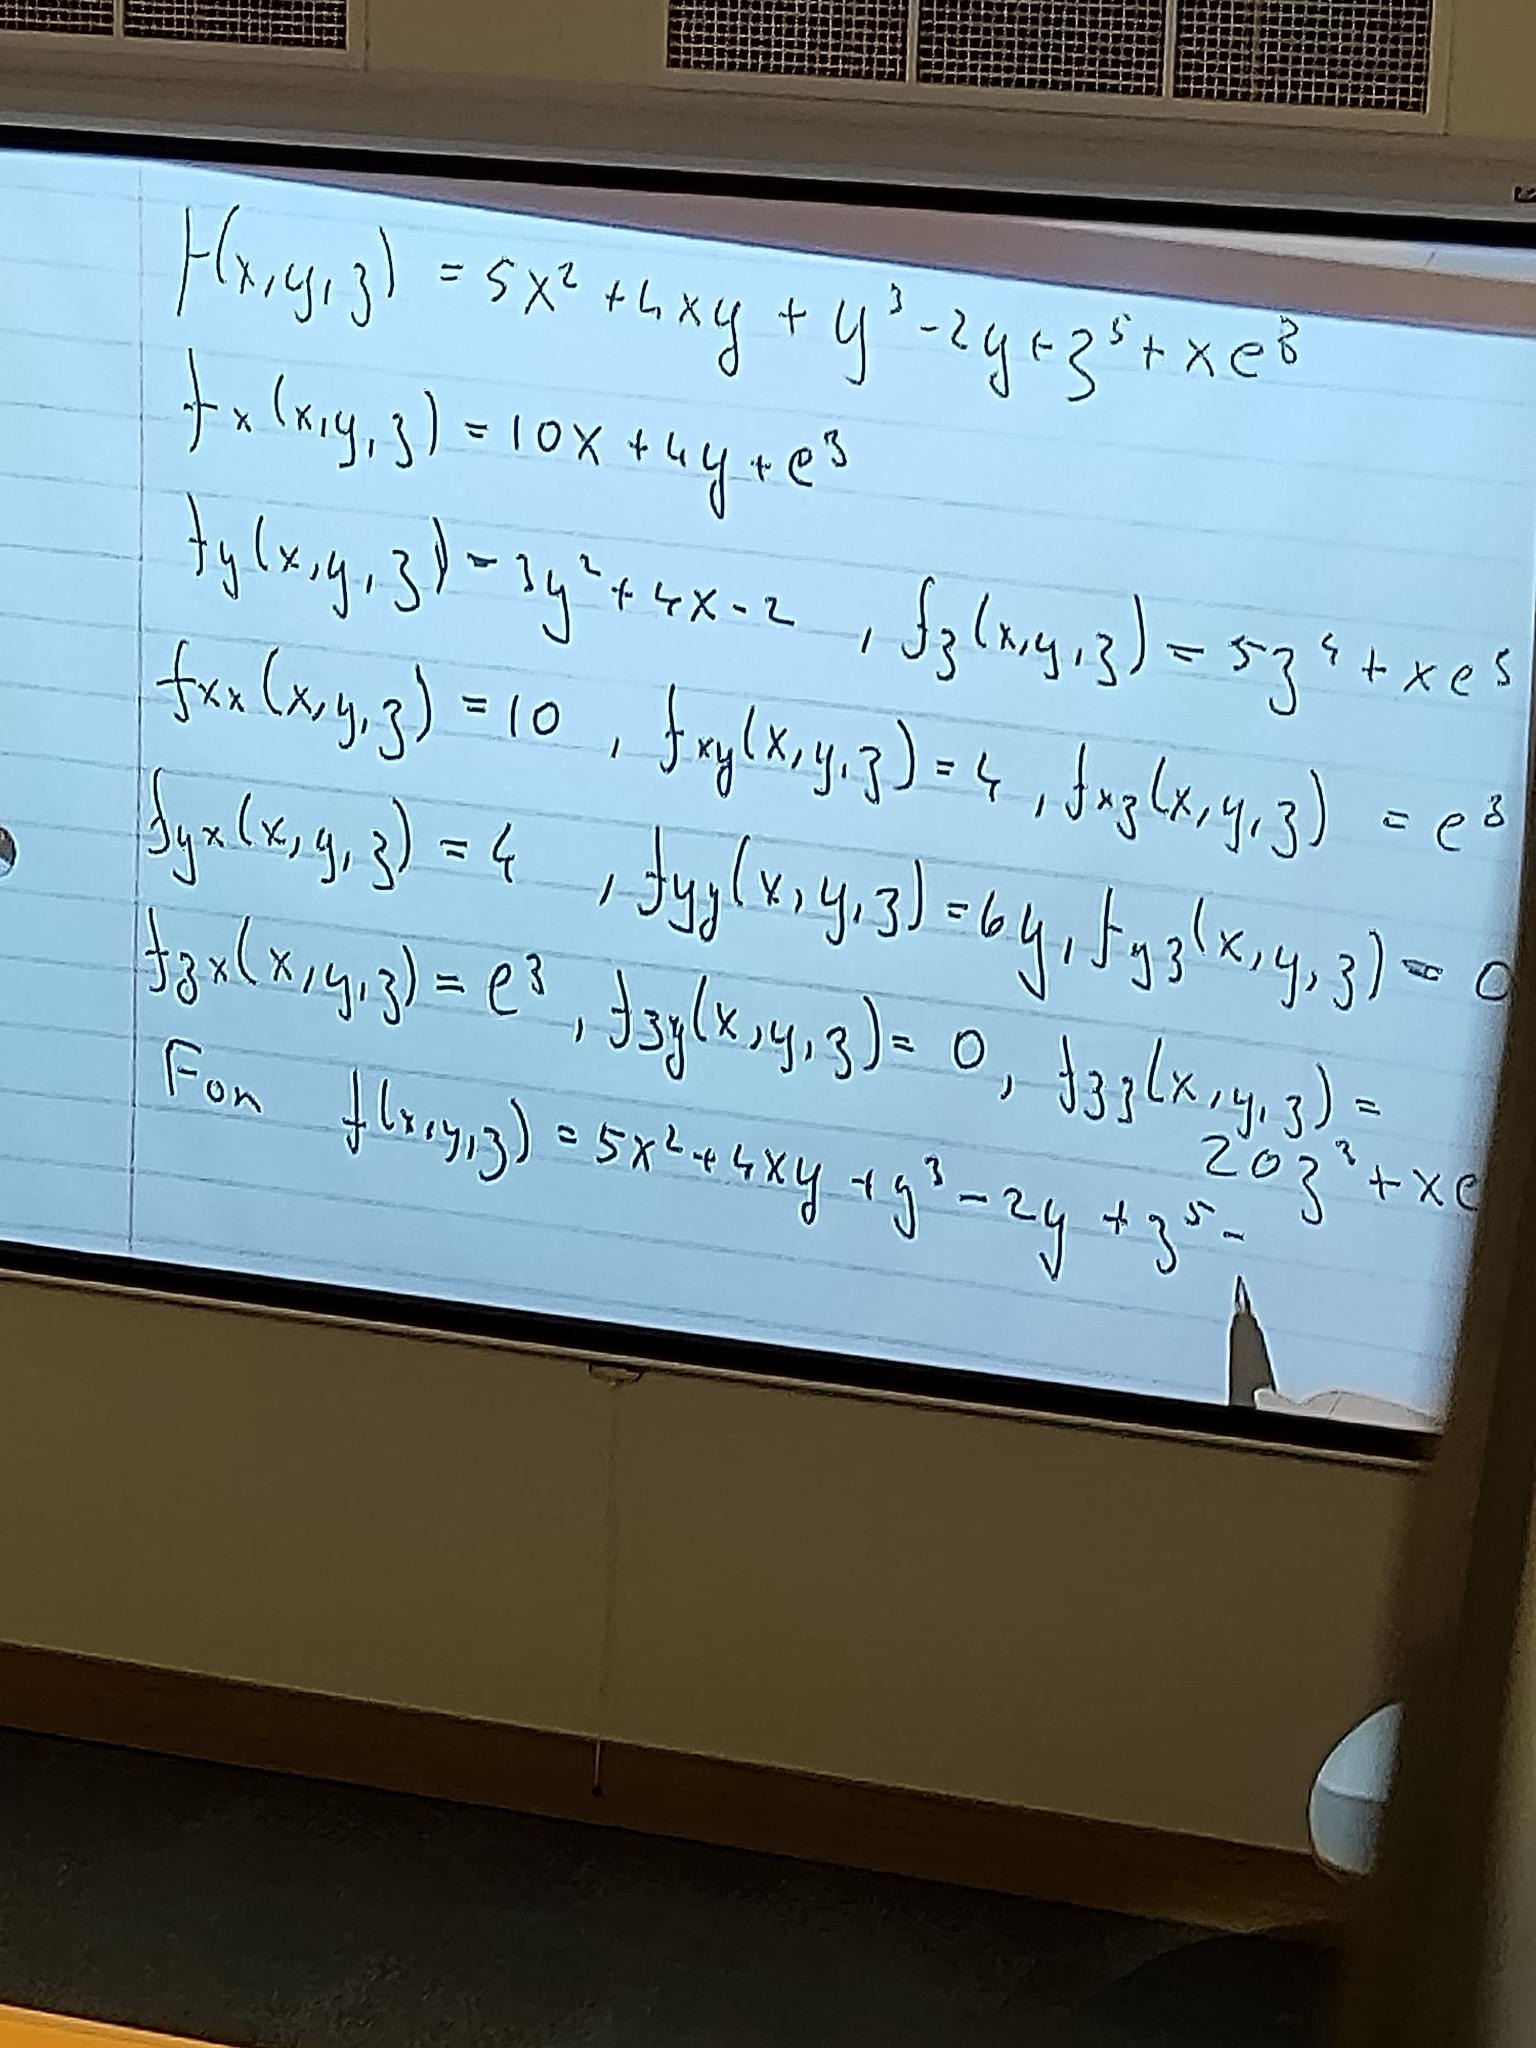 f(x,y,z) = 5x² + 4xy + y³ - 2y + z⁵ + xe^z
fx(x,y,z) = 10x + 4y + e^z
fy(x,y,z) = 3y² + 4x - 2 , fz(x,y,z) = 5z⁴ + xe^z
fxx(x,y,z) = 10 , fxy(x,y,z) = 4 , fxz(x,y,z) = e^z
fyx(x,y,z) = 4 , fyy(x,y,z) = 6y, fyz(x,y,z) = 0
fzx(x,y,z) = e^z , fzy(x,y,z) = 0, fzz(x,y,z) =
20z³ + xe
For f(x,y,z) = 5x² + 4xy + y³ - 2y + z⁵ -